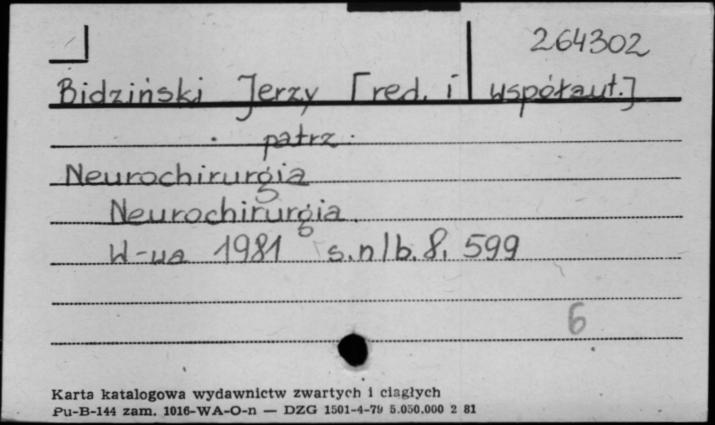 264302
Bidziński Jerzy [red. i współaut.]
patrz
Neurochirurgia
Neurochirurgia
W-wa 1981 s.nlb.8, 599
6
Karta katalogowa wydawnictw zwartych i ciągłych
Pu-B-144 zam. 1016-WA-O-n — DZG 1501-4-79 5.050.000 2 81